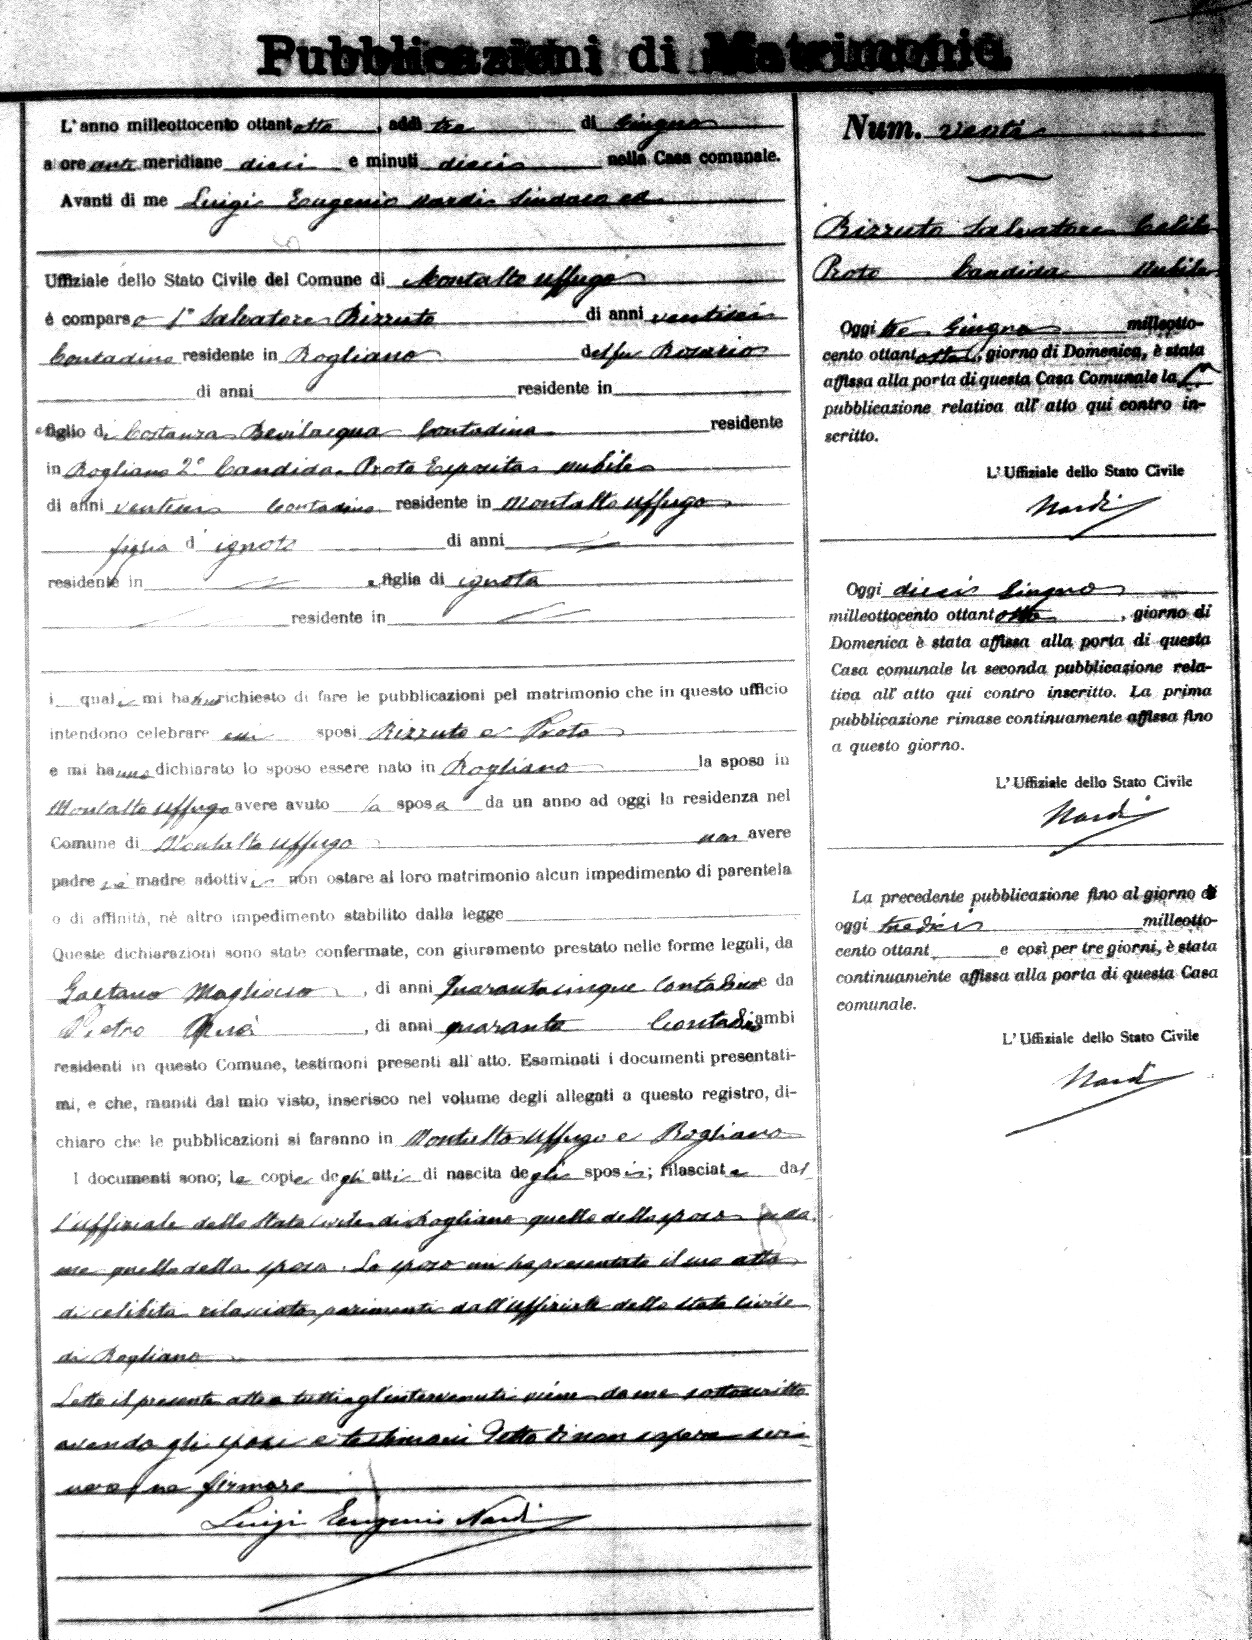 Pubblicazioni di Matrimonio
L'anno milleottocento ottantotto, addì tre di Giugno
a ore ante meridiane dieci e minuti dieci nella Casa comunale.
Avanti di me Luigi Eugenio Nardi Sindaco ed
Uffiziale dello Stato Civile del Comune di Montalto Uffugo
é comparso 1º Salvatore Rizzuto di anni ventisei
Contadino residente in Rogliano del fu Rosario
di anni residente in
e figlio di Costanza Bevilacqua Contadina residente
in Rogliano 2º Candida Proto Esposita nubile
di anni ventisei Contadina residente in Montalto Uffugo
figlia d' ignoto di anni
residente in e figlia di ignota
residente in
i quali mi hanno richiesto di fare le pubblicazioni pel matrimonio che in questo ufficio
intendono celebrare essi sposi Rizzuto e Proto
e mi hanno dichiarato lo sposo essere nato in Rogliano la sposa in
Montalto Uffugo avere avuto la sposa da un anno ad oggi la residenza nel
Comune di Montalto Uffugo non avere
padre nè madre adottivi non ostare al loro matrimonio alcun impedimento di parentela
o di affinità, nè altro impedimento stabilito dalla legge
Queste dichiarazioni sono state confermate, con giuramento prestato nelle forme legali, da
Gaetano Magliocco, di anni Quarantacinque Contadino e da
Pietro, di anni quaranta Contadino ambi
residenti in questo Comune, testimoni presenti all' atto. Esaminati i documenti presentati-
mi, e che, muniti dal mio visto, inserisco nel volume degli allegati a questo registro, di-
chiaro che le pubblicazioni si faranno in Montalto Uffugo e Rogliano
I documenti sono; le copie degli atti di nascita degli sposi; rilasciate dal
l'uffiziale dello Stato Civile di Rogliano quello dello sposo e da
me quello della sposa. Lo sposo mi ha presentato il suo atto
di celibità rilasciato parimenti dall'uffiziale dello Stato Civile
di Rogliano
Letto il presente atto a tutti gl'intervenuti viene da me sottoscritto
avendo gli sposi e testimoni detto di non sapere scri-
vere ne firmare
Luigi Eugenio Nardi
Num. venti
Rizzuto Salvatore Celibe
Proto Candida Nubile
Oggi tre Giugno milleotto-
cento ottantotto, giorno di Domenica, è stata
affissa alla porta di questa Casa Comunale la 1ª
pubblicazione relativa all' atto qui contro in-
scritto.
L'Uffiziale dello Stato Civile
Nardi
Oggi dieci Giugno
milleottocento ottantotto, giorno di
Domenica è stata affissa alla porta di questa
Casa comunale la seconda pubblicazione rela-
tiva all' atto qui contro inscritto. La prima
pubblicazione rimase continuamente affissa fino
a questo giorno.
L'Uffiziale dello Stato Civile
Nardi
La precedente pubblicazione fino al giorno di
oggi tredici milleotto-
cento ottant e così per tre giorni, è stata
continuamente affissa alla porta di questa Casa
comunale.
L'Uffiziale dello Stato Civile
Nardi